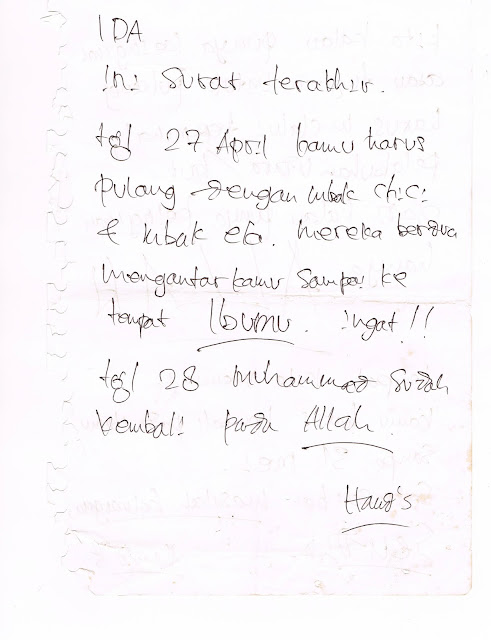 IDA
ini surat terakhir.
tgl 27 April kamu harus
pulang dengan mbak chici
& mbak eta. mereka berdua
mengantar kamu sampai ke
tempat Ibumu. ingat!!
tgl 28 muhammad sudah
kembali pada Allah.